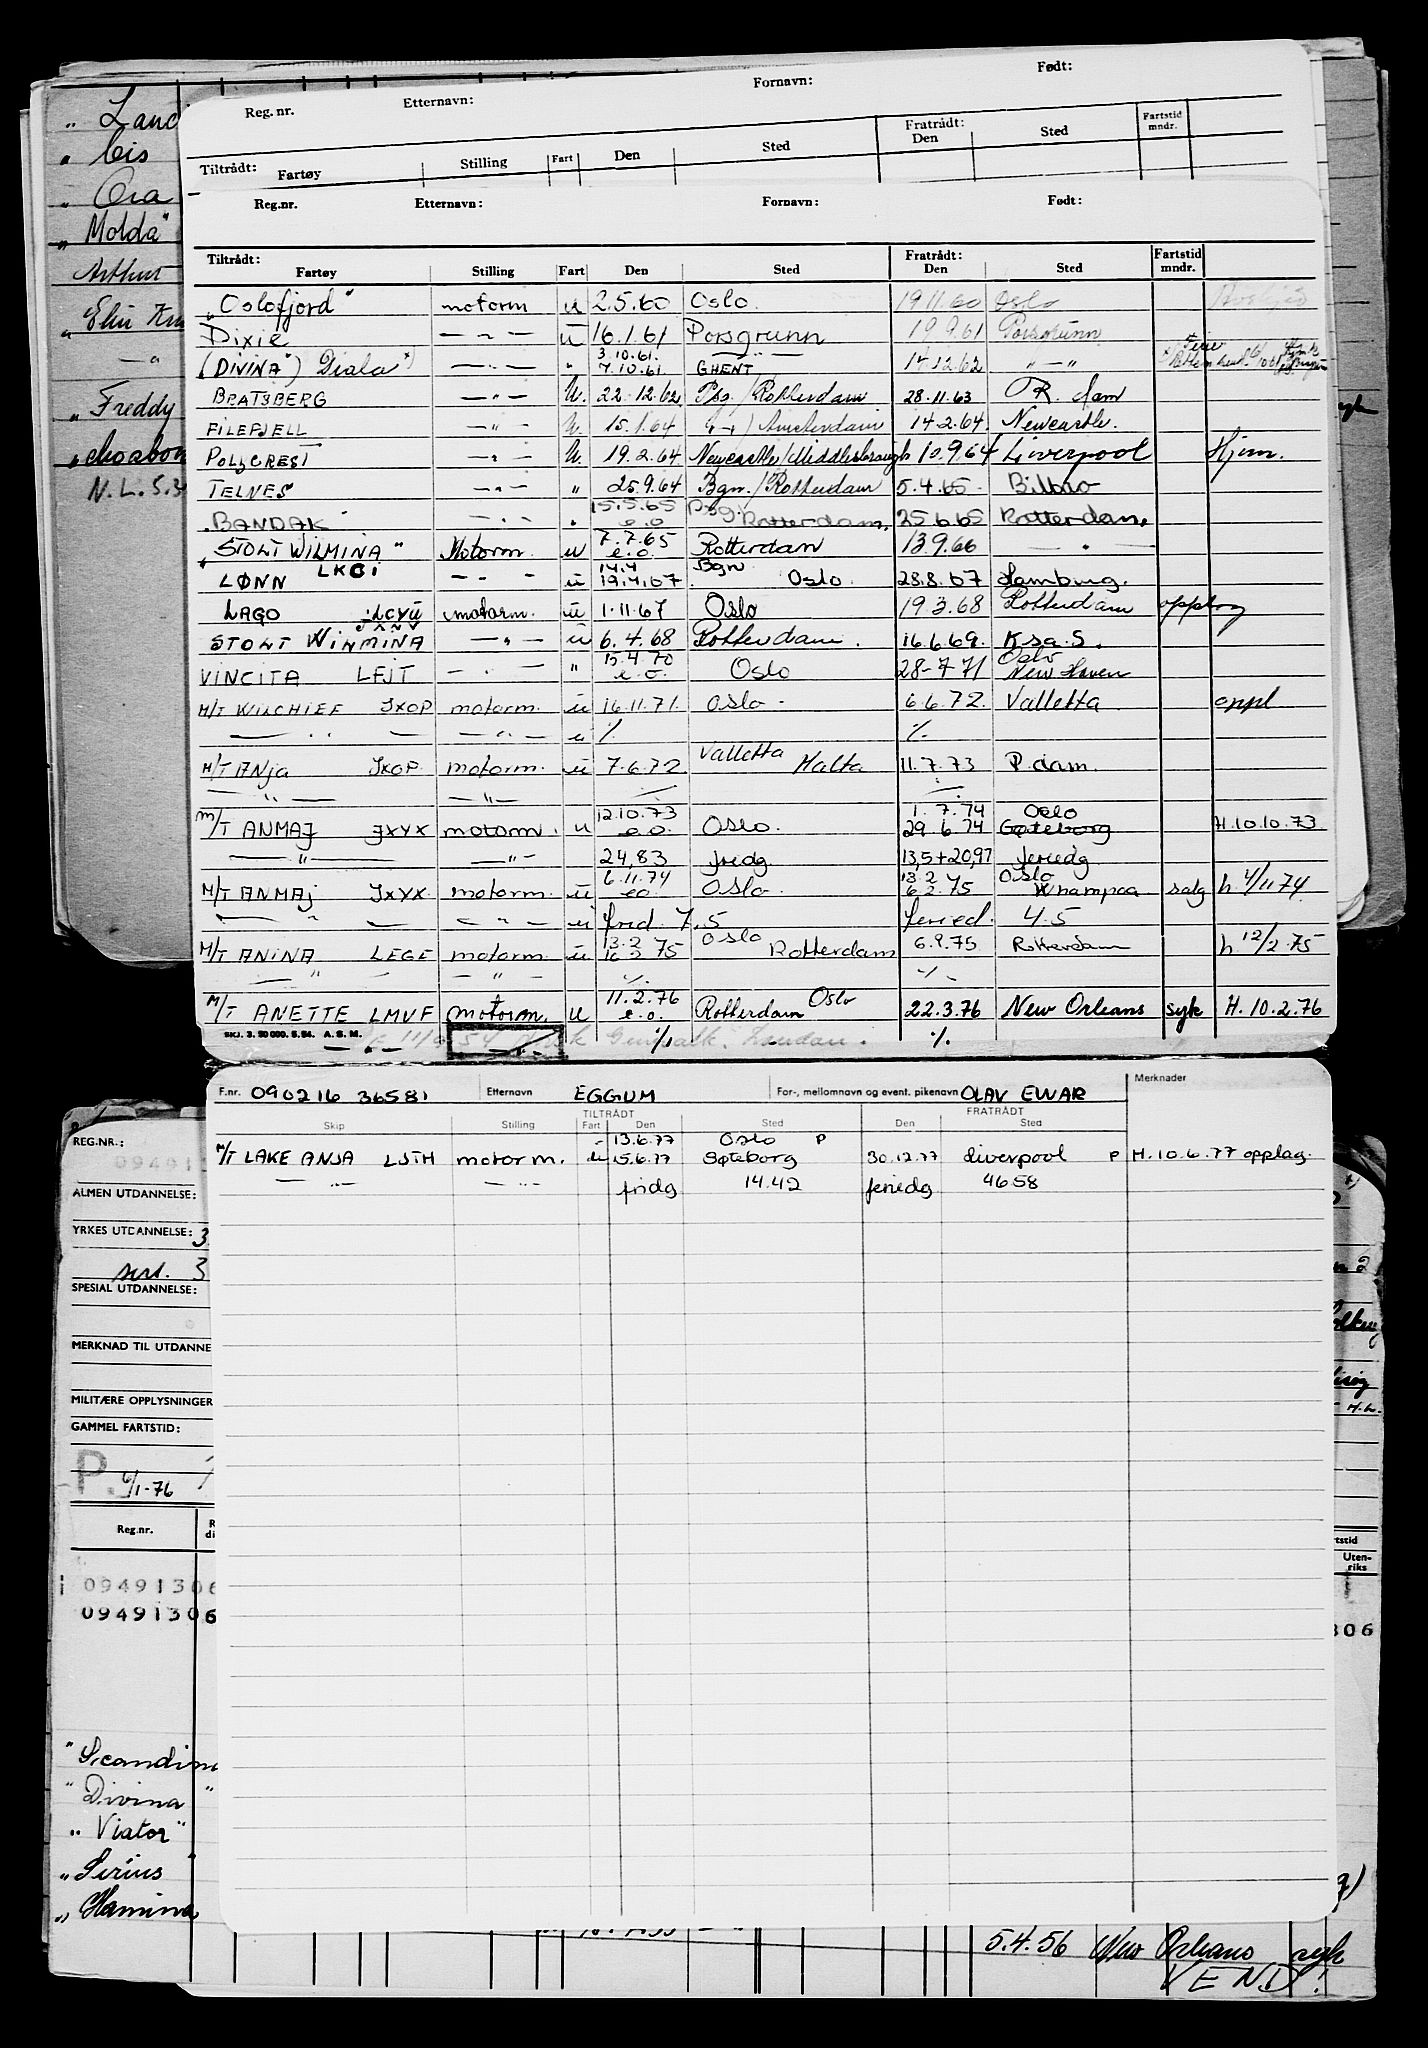 Reg.nr. Etternavn: Fornavn: Født:
Tiltrådt: Fartøy Stilling Fart Den Sted Fratrådt: Den Sted Fartstid mndr.
Reg.nr. Etternavn: Fornavn: Født:
Tiltrådt: Fartøy Stilling Fart Den Sted Fratrådt: Den Sted Fartstid mndr.
"Oslofjord" motorm u 2.5.60 Oslo. 19.11.60 Oslo
Dixie — " — u 16.1.61 Porsgrunn 19.9.61 Porsgrunn
3.10.61. — " —
(DIVINA") Diala" — " — " 7.10.61 GHENT 14.12.62 — " —
BRATSBERG — " — U. 22.12.62 Psg./Rotterdam 28.11.63 R.dam
FILEFJELL — " — U. 15.1.64 — " —/Amsterdam 14.2.64 Newcastle.
POLYCREST — " — U. 19.2.64 Newcastle/Middlesbrough 10.9.64 Liverpool Hjem.
TELNES — " — " 25.9.64 Bgn./Rotterdam 5.4.65 Bilbao
15.5.65 Psg
BANDAK — " — " e.o Rotterdam. 25.6.65 Rotterdam.
7.7.65
"STOLT WILMINA" Motorm. u e.o. Rotterdam 13.9.66 — " —
14.4 Bgn
LØNN LKCI — " — u 19.4.67 Oslo. 28.8.67 Hamburg.
LAGO LCYU motorm. u 1.11.67 Oslo 19.3.68 Rotterdam opplag
STOLT WILMINA — " — u 6.4.68 Rotterdam. 16.6.69. K.sa.S.
15.4.70 Oslo
VINCITA LFIT — " — " e.o. Oslo 28-7 71 New Haven
M/T WILCHIEF JXOP motorm. u 16.11.71. Oslo 6.6.72. Valletta oppl
— " — — " — u ./. ./.
M/T ANJA JXOP motorm. u 7.6.72. Valletta Malta 11.7.73 R.dam.
— " — — " — ./. ./.
12.10.73 1.7.74 Oslo
M/T ANMAJ JXYX motorm. u e.o. Oslo. 29.6.74 Gøteborg H.10.10.73
— " — — " — 24,83 fredg. 13,5+20,97 feriedg
6.11.74 13.2 Oslo
M/T ANMAJ JXYX motorm. u eo. Oslo. 6.2.75 Whampoa salg h 4/11 74
— " — — " — u frid. 7.5 feried. 4.5
13.2 Oslo
M/T ANINA LEGE motorm. u 75 Rotterdam 6.9.75 Rotterdam h 12/2 75
— " — — " — ./. ./.
11.2.76 Oslo
M/T ANETTE LMVF motorm. u e.o. Rotterdam 22.3.76 New Orleans syk H.10.2.76
SKJ. 3. 50 000. 5.54. A.S.M. ./. ./.
F.nr. 090216 36581 Etternavn EGGUM For-, mellomnavn og event. pikenavn OLAV EWAR Merknader
TILTRÅDT FRATRÅDT
Skip Stilling Fart Den Sted Den Sted
13.6.77 Oslo P
M/T LAKE ANJA LJTH motorm. u 15.6.77 Gøteborg 30.12.77 Liverpool P H.10.6.77 opplag.
— " — — " — fridg 14.42 feriedg 46.58
" Land
" Cis
" Ora
"Molda"
Arthur
" Elin
— " —
"Freddy
N.L.S.
REG.NR.:
09491
ALMEN UTDANNELSE:
YRKES UTDANNELSE: 3
3
SPESIAL UTDANNELSE:
MERKNAD TIL UTDANNE
MILITÆRE OPPLYSNINGER
GAMMEL FARTSTID:
P. 6/1-76
Reg.nr. R di
09491306
09491306
rtstid
Uten-riks
306
"Scandina
"Divina"
"Viator"
"Sirius"
"Hamina
5.4.56 New Orleans syk
VEND!